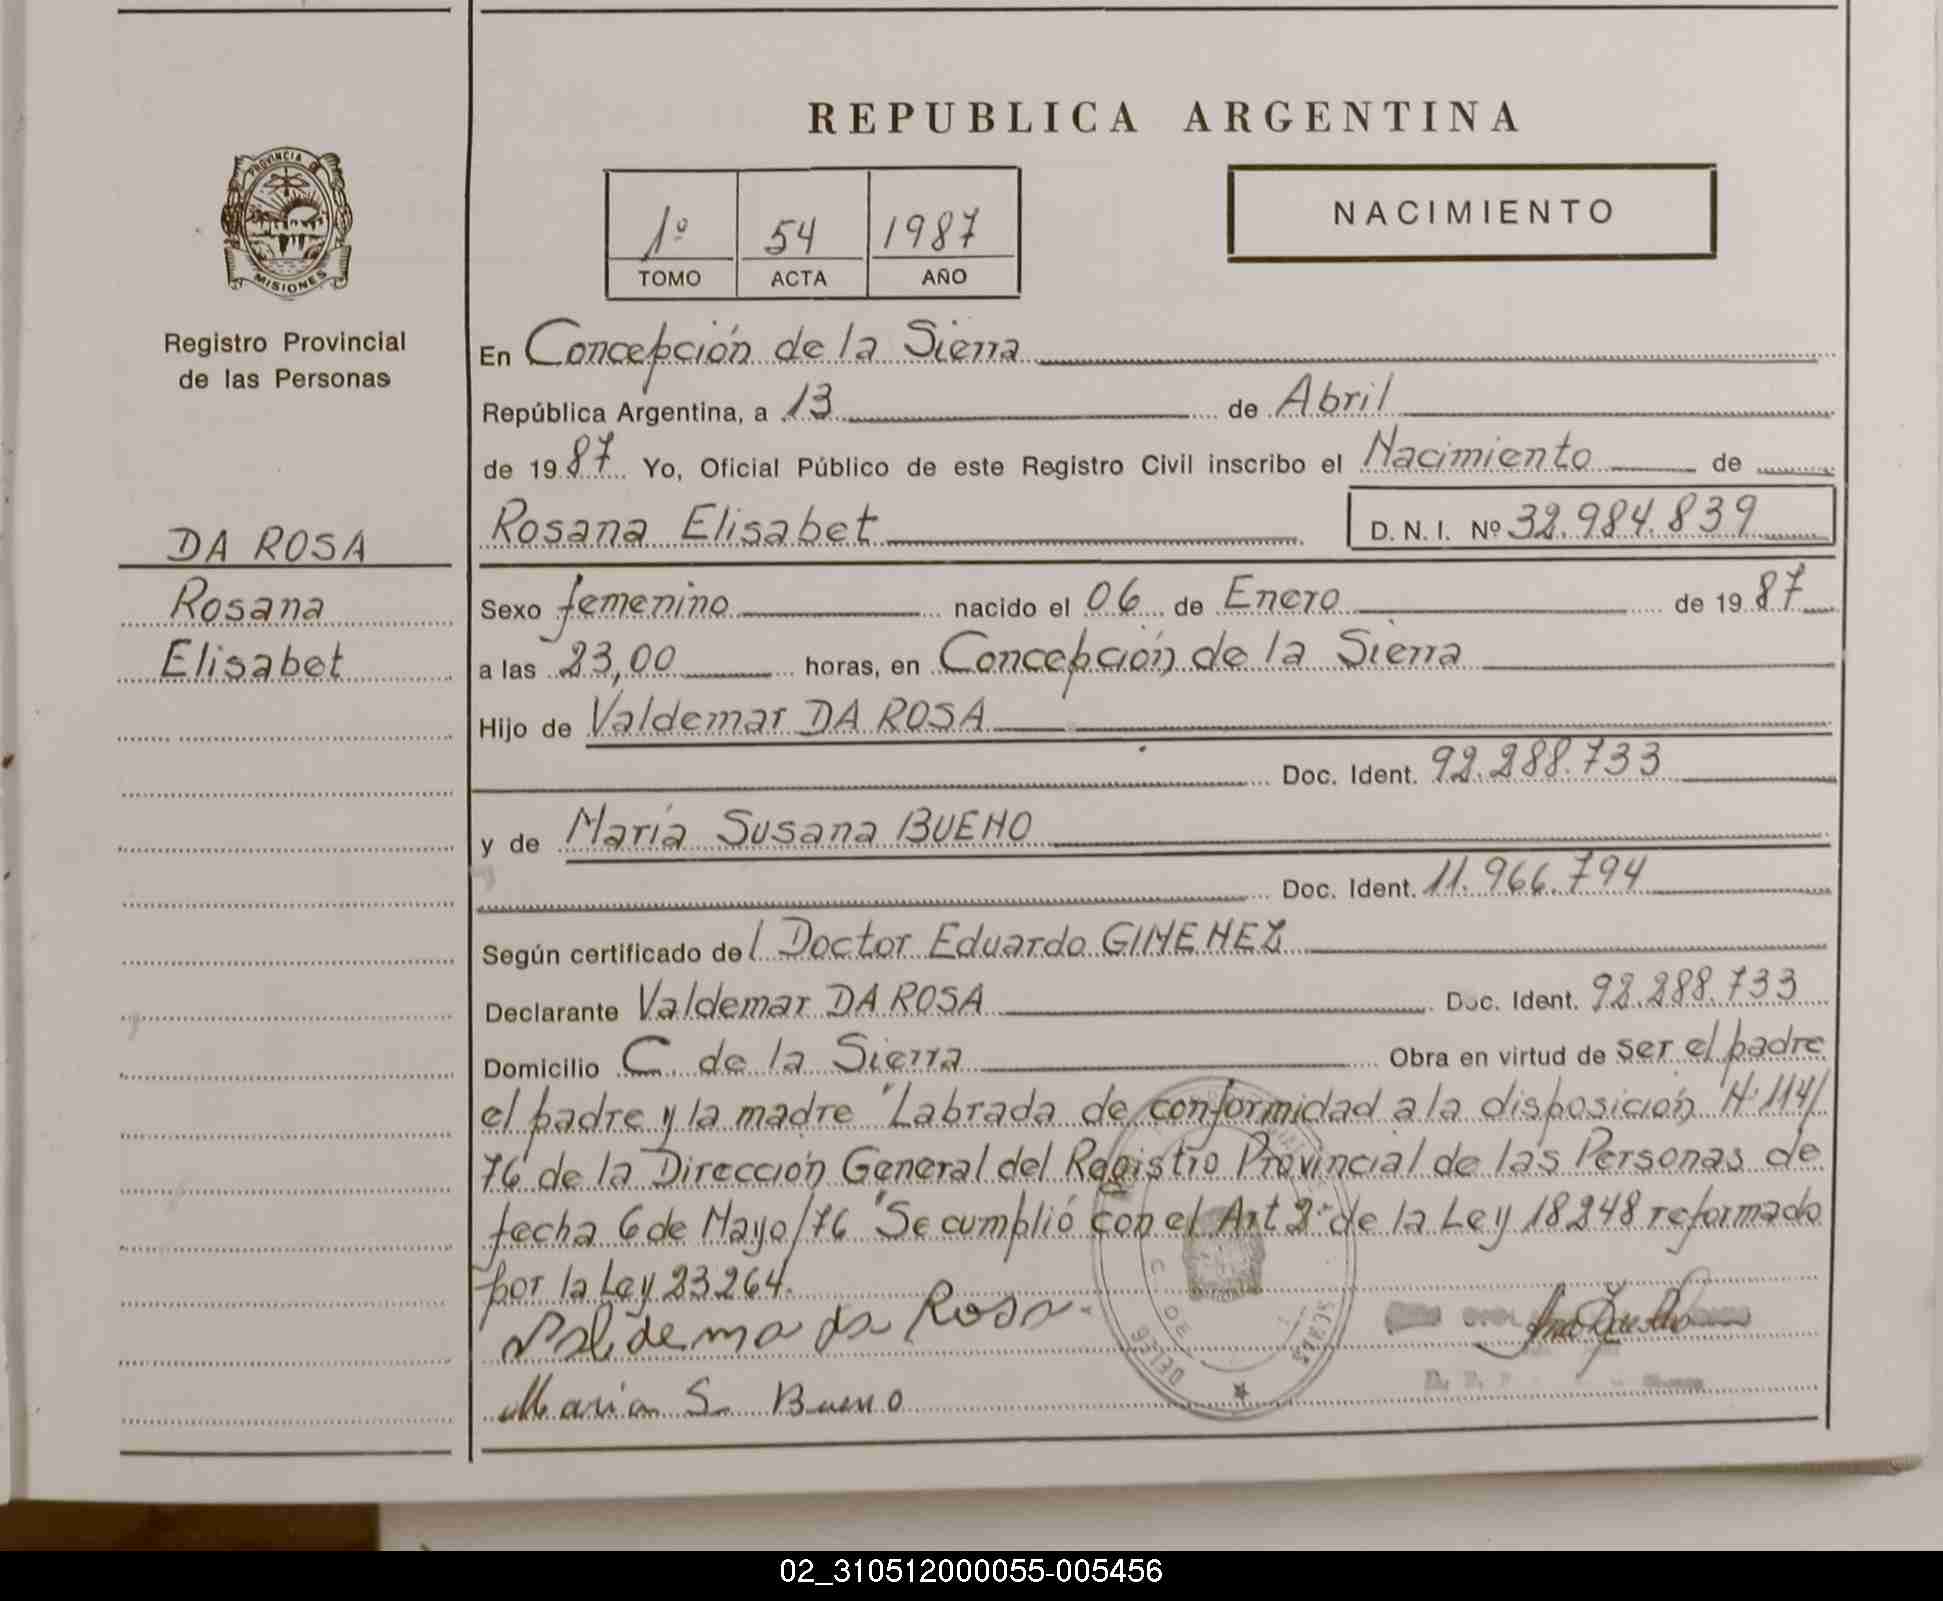 REPUBLICA ARGENTINA
PROVINCIA DE
MISIONES
Registro Provincial
de las Personas
DA ROSA
Rosana
Elisabet
1º 54 1987
TOMO ACTA AÑO
NACIMIENTO
En Concepción de la Sierra
República Argentina, a 13 de Abril
de 1987 Yo, Oficial Público de este Registro Civil inscribo el Nacimiento de
Rosana Elisabet D. N. I. Nº 32.984.839
Sexo femenino nacido el 06 de Enero de 1987
a las 23,00 horas, en Concepción de la Sierra
Hijo de Valdemar DA ROSA
Doc. Ident. 92.288.733
y de María Susana BUENO
Doc. Ident. 11.966.794
Según certificado del Doctor Eduardo GIMENEZ
Declarante Valdemar DA ROSA Doc. Ident. 92.288.733
Domicilio C. de la Sierra Obra en virtud de ser el padre
el padre y la madre "Labrada de conformidad a la disposición Nº 114/
76 de la Dirección General del Registro Provincial de las Personas de
fecha 6 de Mayo/76 "Se cumplió con el Art 2º de la Ley 18248 reformado
por la Ley 23264.
Valdema da Rosa
Maria S. Bueno
02_310512000055-005456